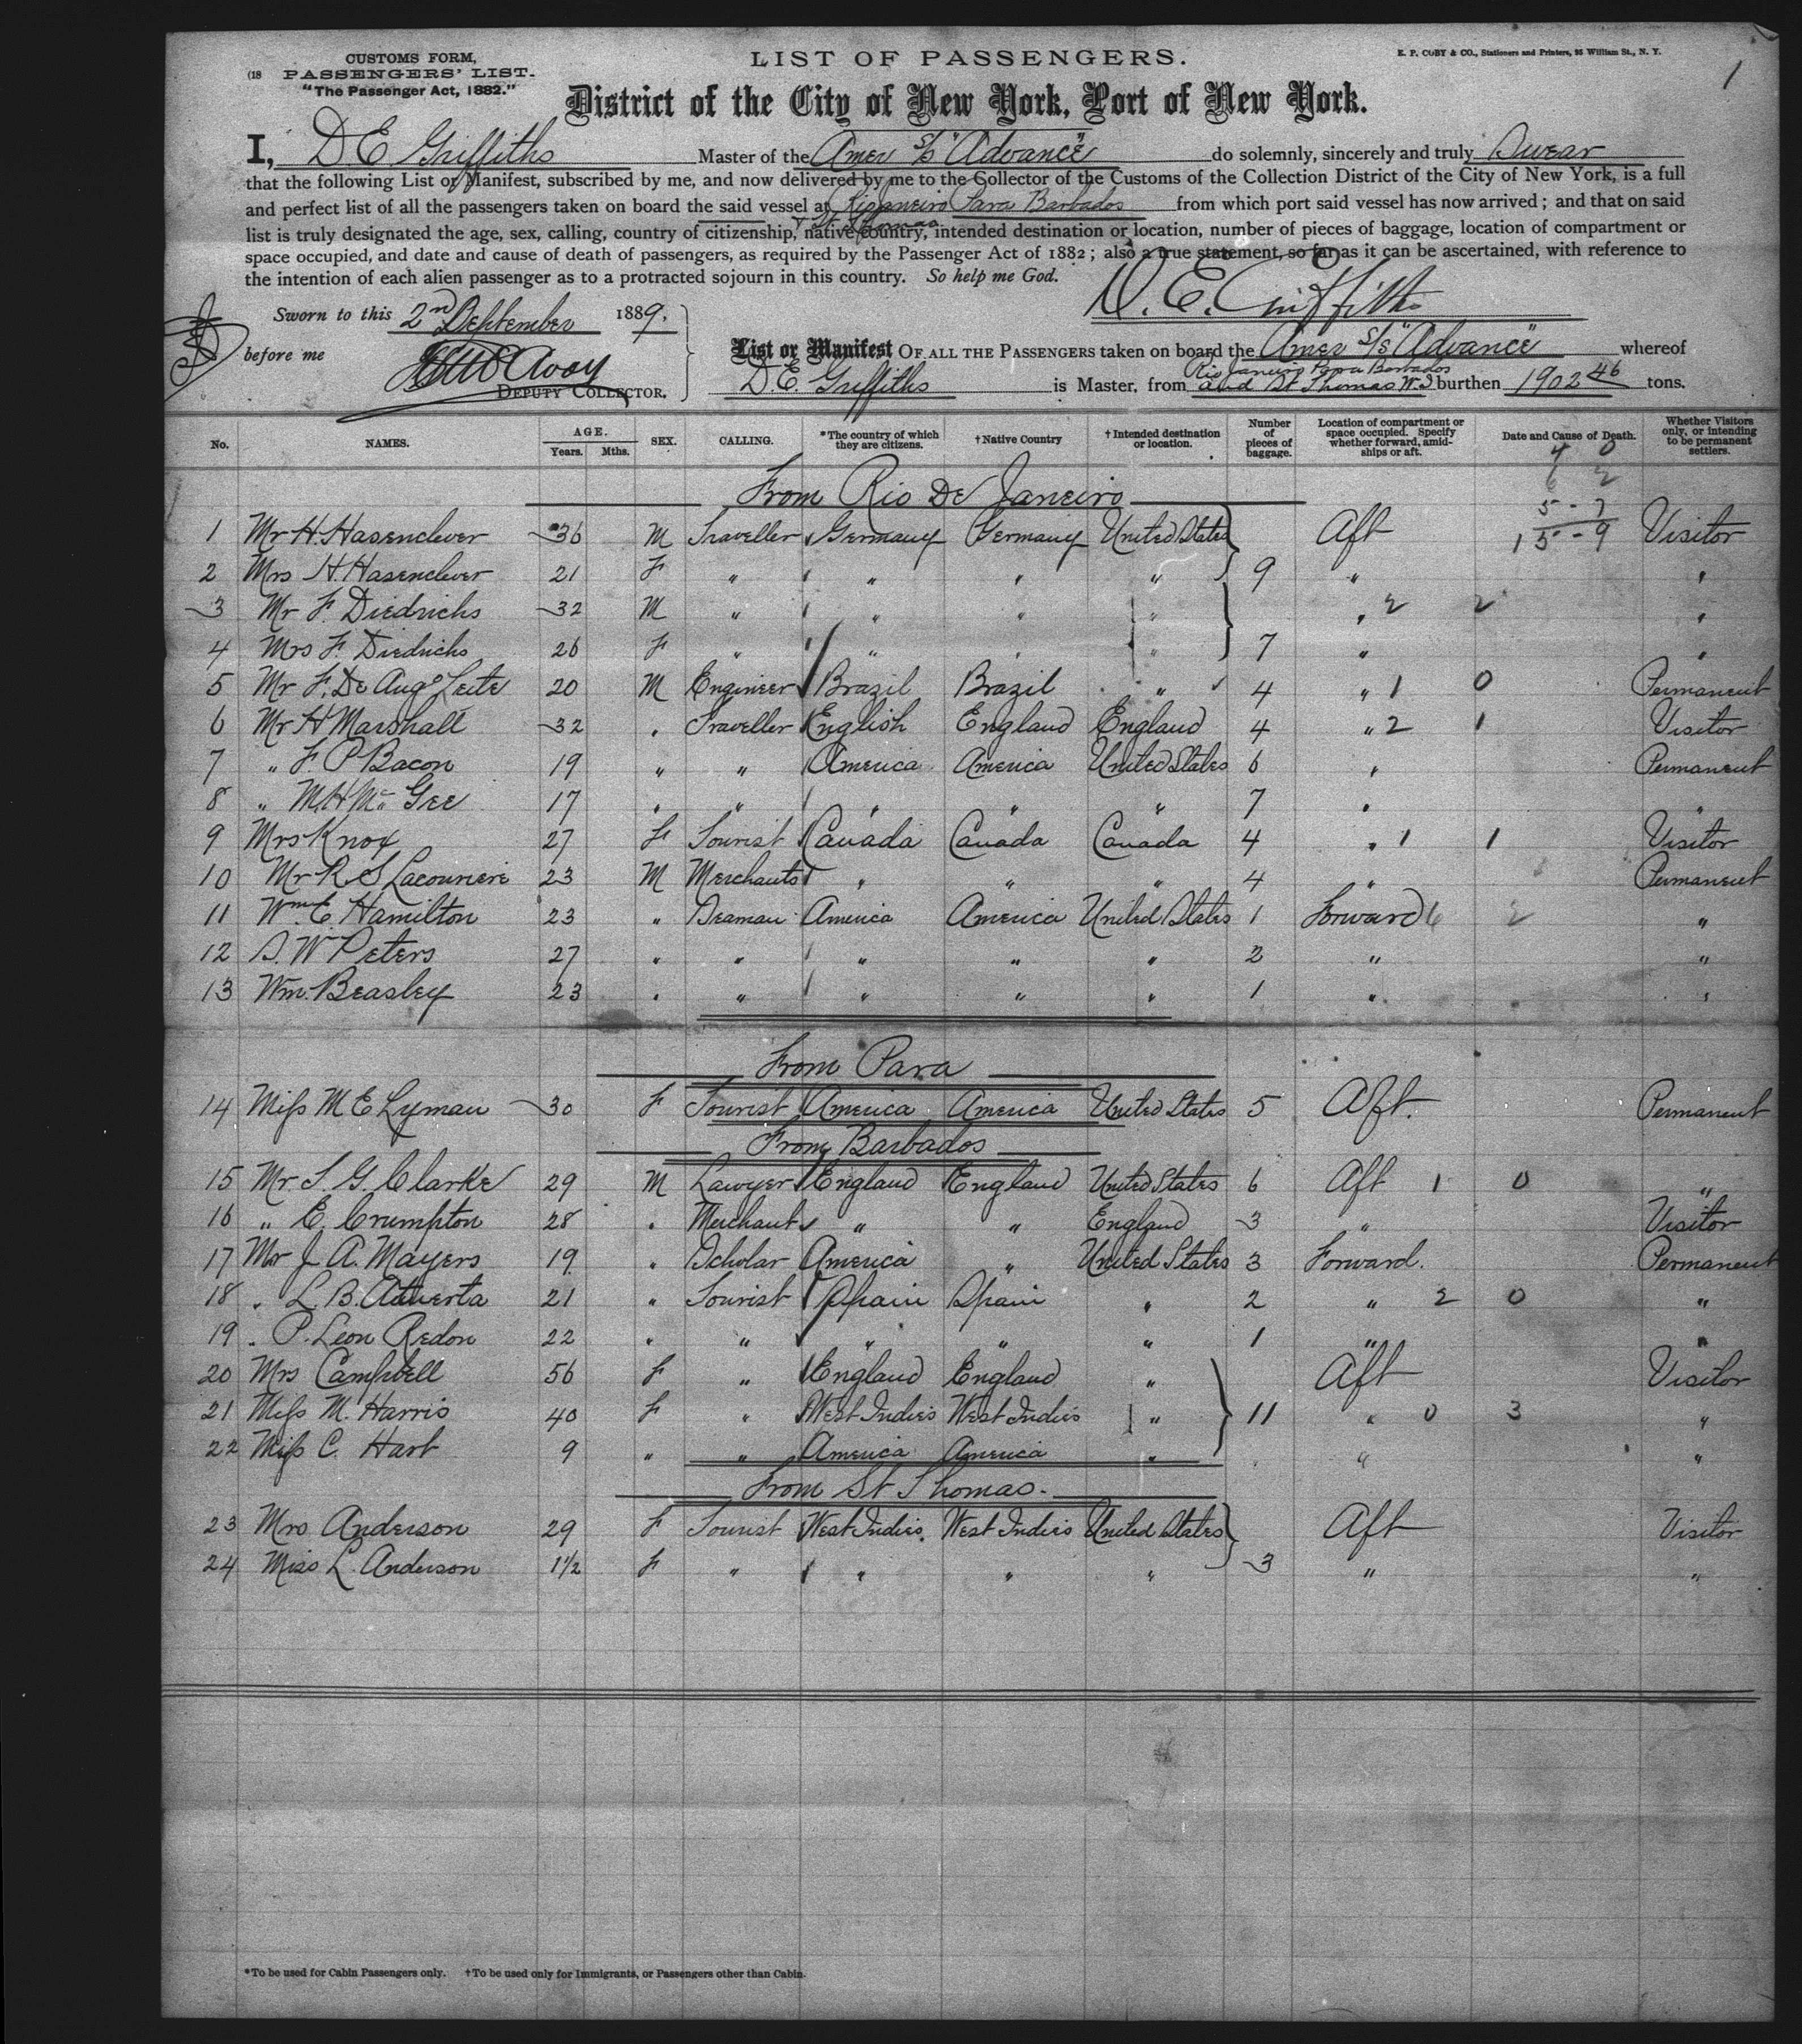 CUSTOMS FORM,
(18 PASSENGERS' LIST.
"The Passenger Act, 1882."
LIST OF PASSENGERS.
E. P. COBY & CO., Stationers and Printers, 95 William St., N. Y.
1
District of the City of New York, Port of New York.
I, D E Griffiths Master of the Amer S/S "Advance" do solemnly, sincerely and truly Swear
that the following List or Manifest, subscribed by me, and now delivered by me to the Collector of the Customs of the Collection District of the City of New York, is a full
and perfect list of all the passengers taken on board the said vessel at Rio Janeiro Para Barbados from which port said vessel has now arrived; and that on said
& St Thomas
list is truly designated the age, sex, calling, country of citizenship, native country, intended destination or location, number of pieces of baggage, location of compartment or
space occupied, and date and cause of death of passengers, as required by the Passenger Act of 1882; also a true statement, so far as it can be ascertained, with reference to
the intention of each alien passenger as to a protracted sojourn in this country. So help me God.
D. E. Griffiths
Sworn to this 2nd September 1889.
before me
DEPUTY COLLECTOR.
List or Manifest OF ALL THE PASSENGERS taken on board the Amer S/S "Advance" whereof
Rio Janeiro Para Barbados
D. E. Griffiths is Master, from and St Thomas W.I burthen 1902 46 tons.
No. NAMES. AGE. Years. Mths. SEX. CALLING. *The country of which they are citizens. †Native Country †Intended destination or location. Number of pieces of baggage. Location of compartment or space occupied. Specify whether forward, amidships or aft. Date and Cause of Death. Whether Visitors only, or intending to be permanent settlers.
4 0
6 2
From Rio De Janeiro
5 - 7
15 - 9
1 Mr H. Hasenclever 36 M Traveller Germany Germany United States Aft Visitor
2 Mrs H. Hasenclever 21 F " " " " 9 " "
3 Mr F. Diedrichs 32 M " " " " " 2 2 "
4 Mrs F. Diedrichs 26 F " " " " 7 " "
5 Mr F. De Augo Leite 20 M Engineer Brazil Brazil " 4 " 1 0 Permanent
6 Mr H Marshall 32 " Traveller English England England 4 " 2 1 Visitor
7 " F P Bacon 19 " " America America United States 6 " Permanent
8 " M H Mc Gee 17 " " " " " 7 " "
9 Mrs Knox 27 F Tourist Canada Canada Canada 4 " 1 1 Visitor
10 Mr R. S Lacouriere 23 M Merchants " " " 4 " Permanent
11 Wm C. Hamilton 23 " Seaman America America United States 1 Forward 6 2 "
12 S. W Peters 27 " " " " " 2 " "
13 Wm. Beasley 23 " " " " " 1 " "
From Para
14 Miss M E Lyman 30 F Tourist America America United States 5 Aft. Permanent
From Barbados
15 Mr. S. G. Clarke 29 M Lawyer England England United States 6 Aft 1 0 "
16 " E. Crumpton 28 " Merchants " " England 3 " Visitor
17 Mr J A. Mayers 19 " Scholar America " United States 3 Forward. Permanent
18 " L. B. 21 " Tourist Spain Spain " 2 " 2 0 "
19 " P. Leon Redon 22 " " " " " 1 " "
20 Mrs Campbell 56 F " England England " Aft Visitor
21 Miss M. Harris 40 F " West Indies West Indies " 11 " 0 3 "
22 Miss C. Hart 9 " " America America " " "
From St Thomas.
23 Mrs Anderson 29 F Tourist West Indies West Indies United States Aft Visitor
24 Miss L. Anderson 1½ F " " " " 3 " "
*To be used for Cabin Passengers only. †To be used only for Immigrants, or Passengers other than Cabin.